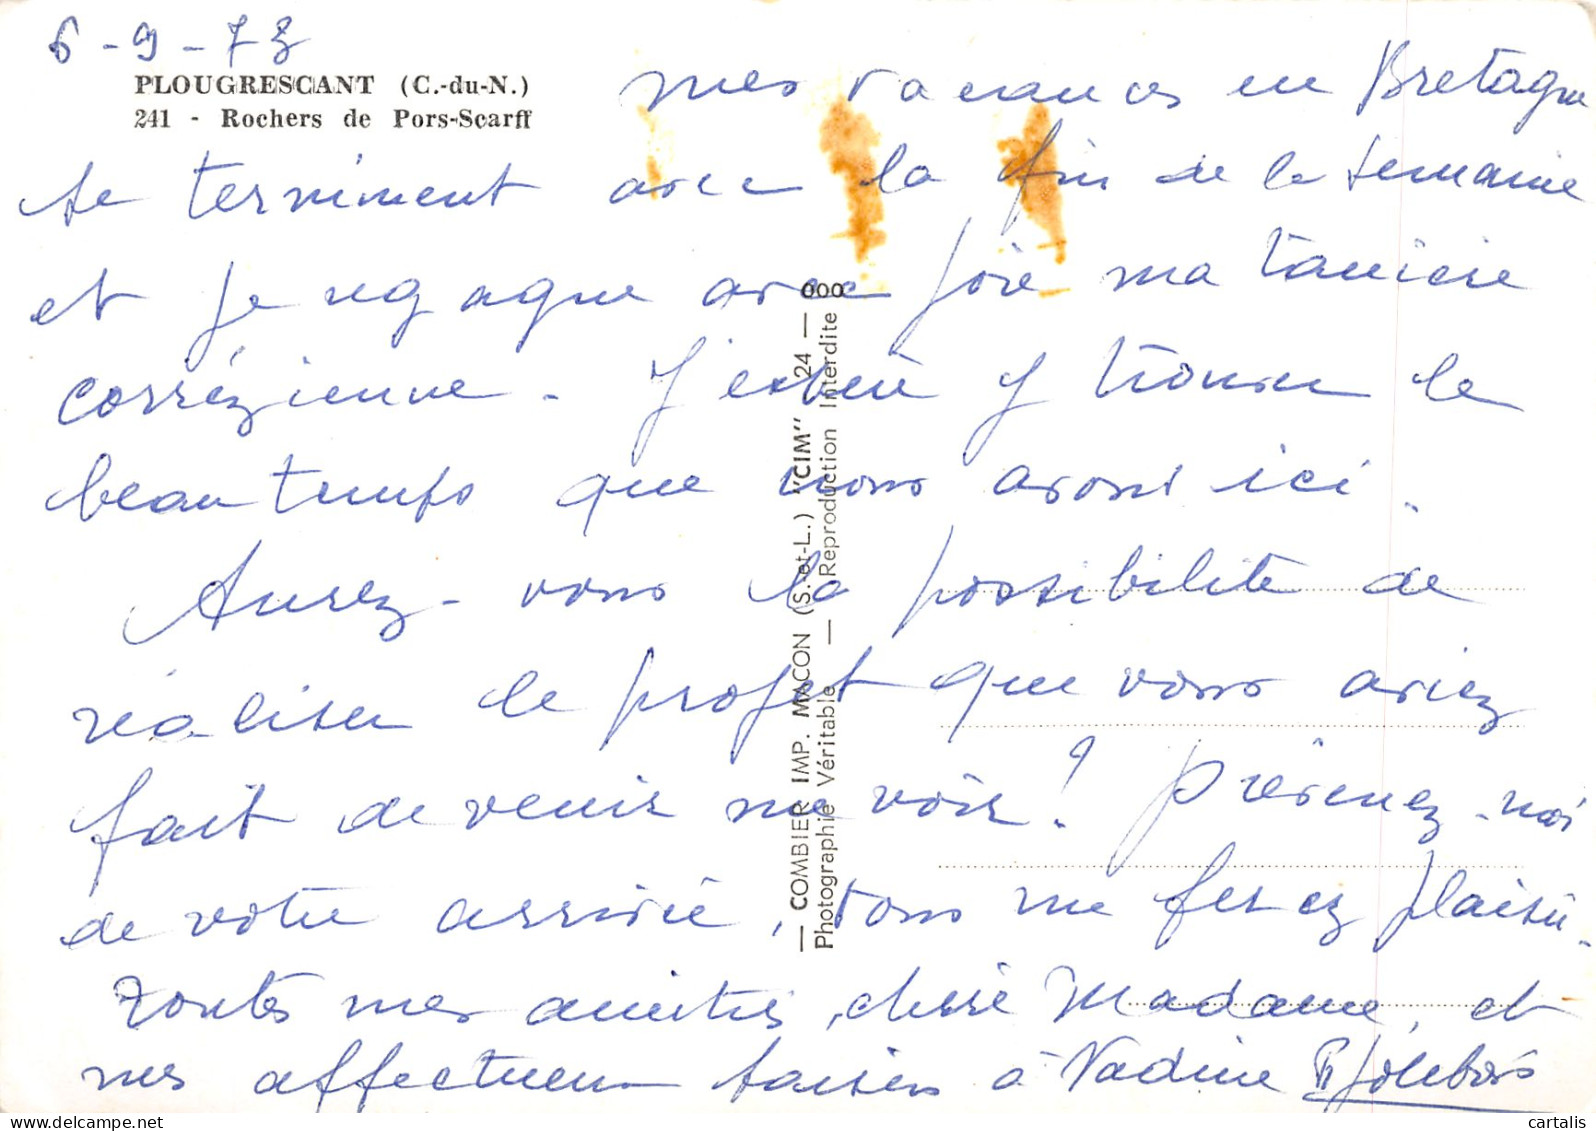 6-9-73
PLOUGRESCANT (C.-du-N.)
241 - Rochers de Pors-Scarff
mes vacances en Bretagne
se terminent avec la fin de la semaine
et je regagne avec joie ma tanière
corrézienne. J'espère y trouver le
beau temps que nous avons ici.
Aurez-vous la possibilité de
réaliser le projet que vous aviez
fait de venir me voir? Prévenez-moi
de votre arrivée, vous me ferez plaisir.
Toutes mes amitiés, chère Madame, et
mes affectueux baisers à Nadine
— COMBIER IMP. MACON (S.-et-L.) "CIM" 24 — 000
Photographie Véritable — Reproduction Interdite
cartalis